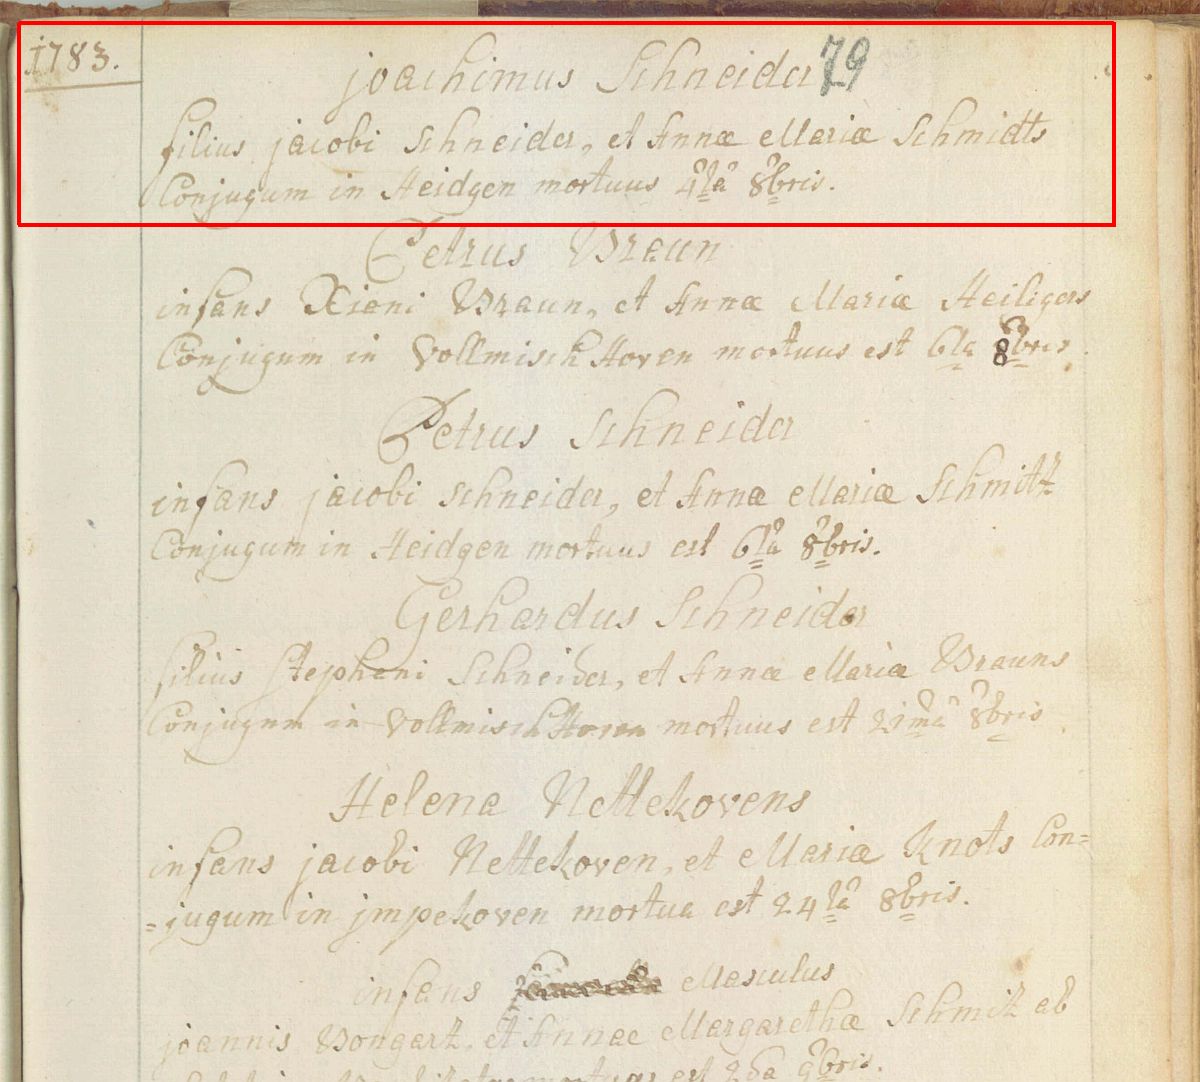 1783.
joachimus Schneider 79
filius jacobi Schneider, et Annæ Mariæ Schmidts
Conjugum in Heidgen mortuus 4tâ 8bris.
Petrus Braun
infans Xiani Braun, et Annæ Mariæ Heiligers
Conjugum in Vollmischhoven mortuus est 6ta 8bris.
Petrus Schneider
infans jacobi schneider, et Annæ Mariæ Schmitz
Conjugum in Heidgen mortuus est 6tâ 8bris.
Gerhardus Schneider
filius Stephani Schneider, et Annæ Mariæ Brauns
Conjugum in Vollmischhoven mortuus est 21mâ 8bris
Helena Nettekovens
infans jacobi Nettekoven, et Mariæ Knots Con=
=jugum in jmpekoven mortua est 24tâ 8bris.
infans Masculus
joannis Bongartz, et Annae Margarethæ Schmitz ab
mortuus est 2da 9bris.